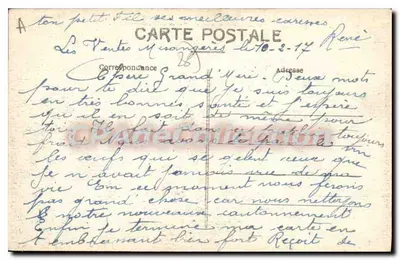 ton petit Fils ses meilleures caresses
René
CARTE POSTALE
Les Vertes 10-2-17
Correspondance
Adresse
Chere Grand Mère Deux mots
pour te dire que je suis toujours
en très bonnes santé et j'espère
qu'il en soit de même pour
toi Il fait toujours
froid
les œufs qui se gelent ceux que
je n'avait jamais vue de ma
vie En ce moment nous ferons
pas grand chose car nous nettoyons
notre nouveaux cantonnement
Enfin je termine ma carte en
t'embrassant bien fort Reçoit de